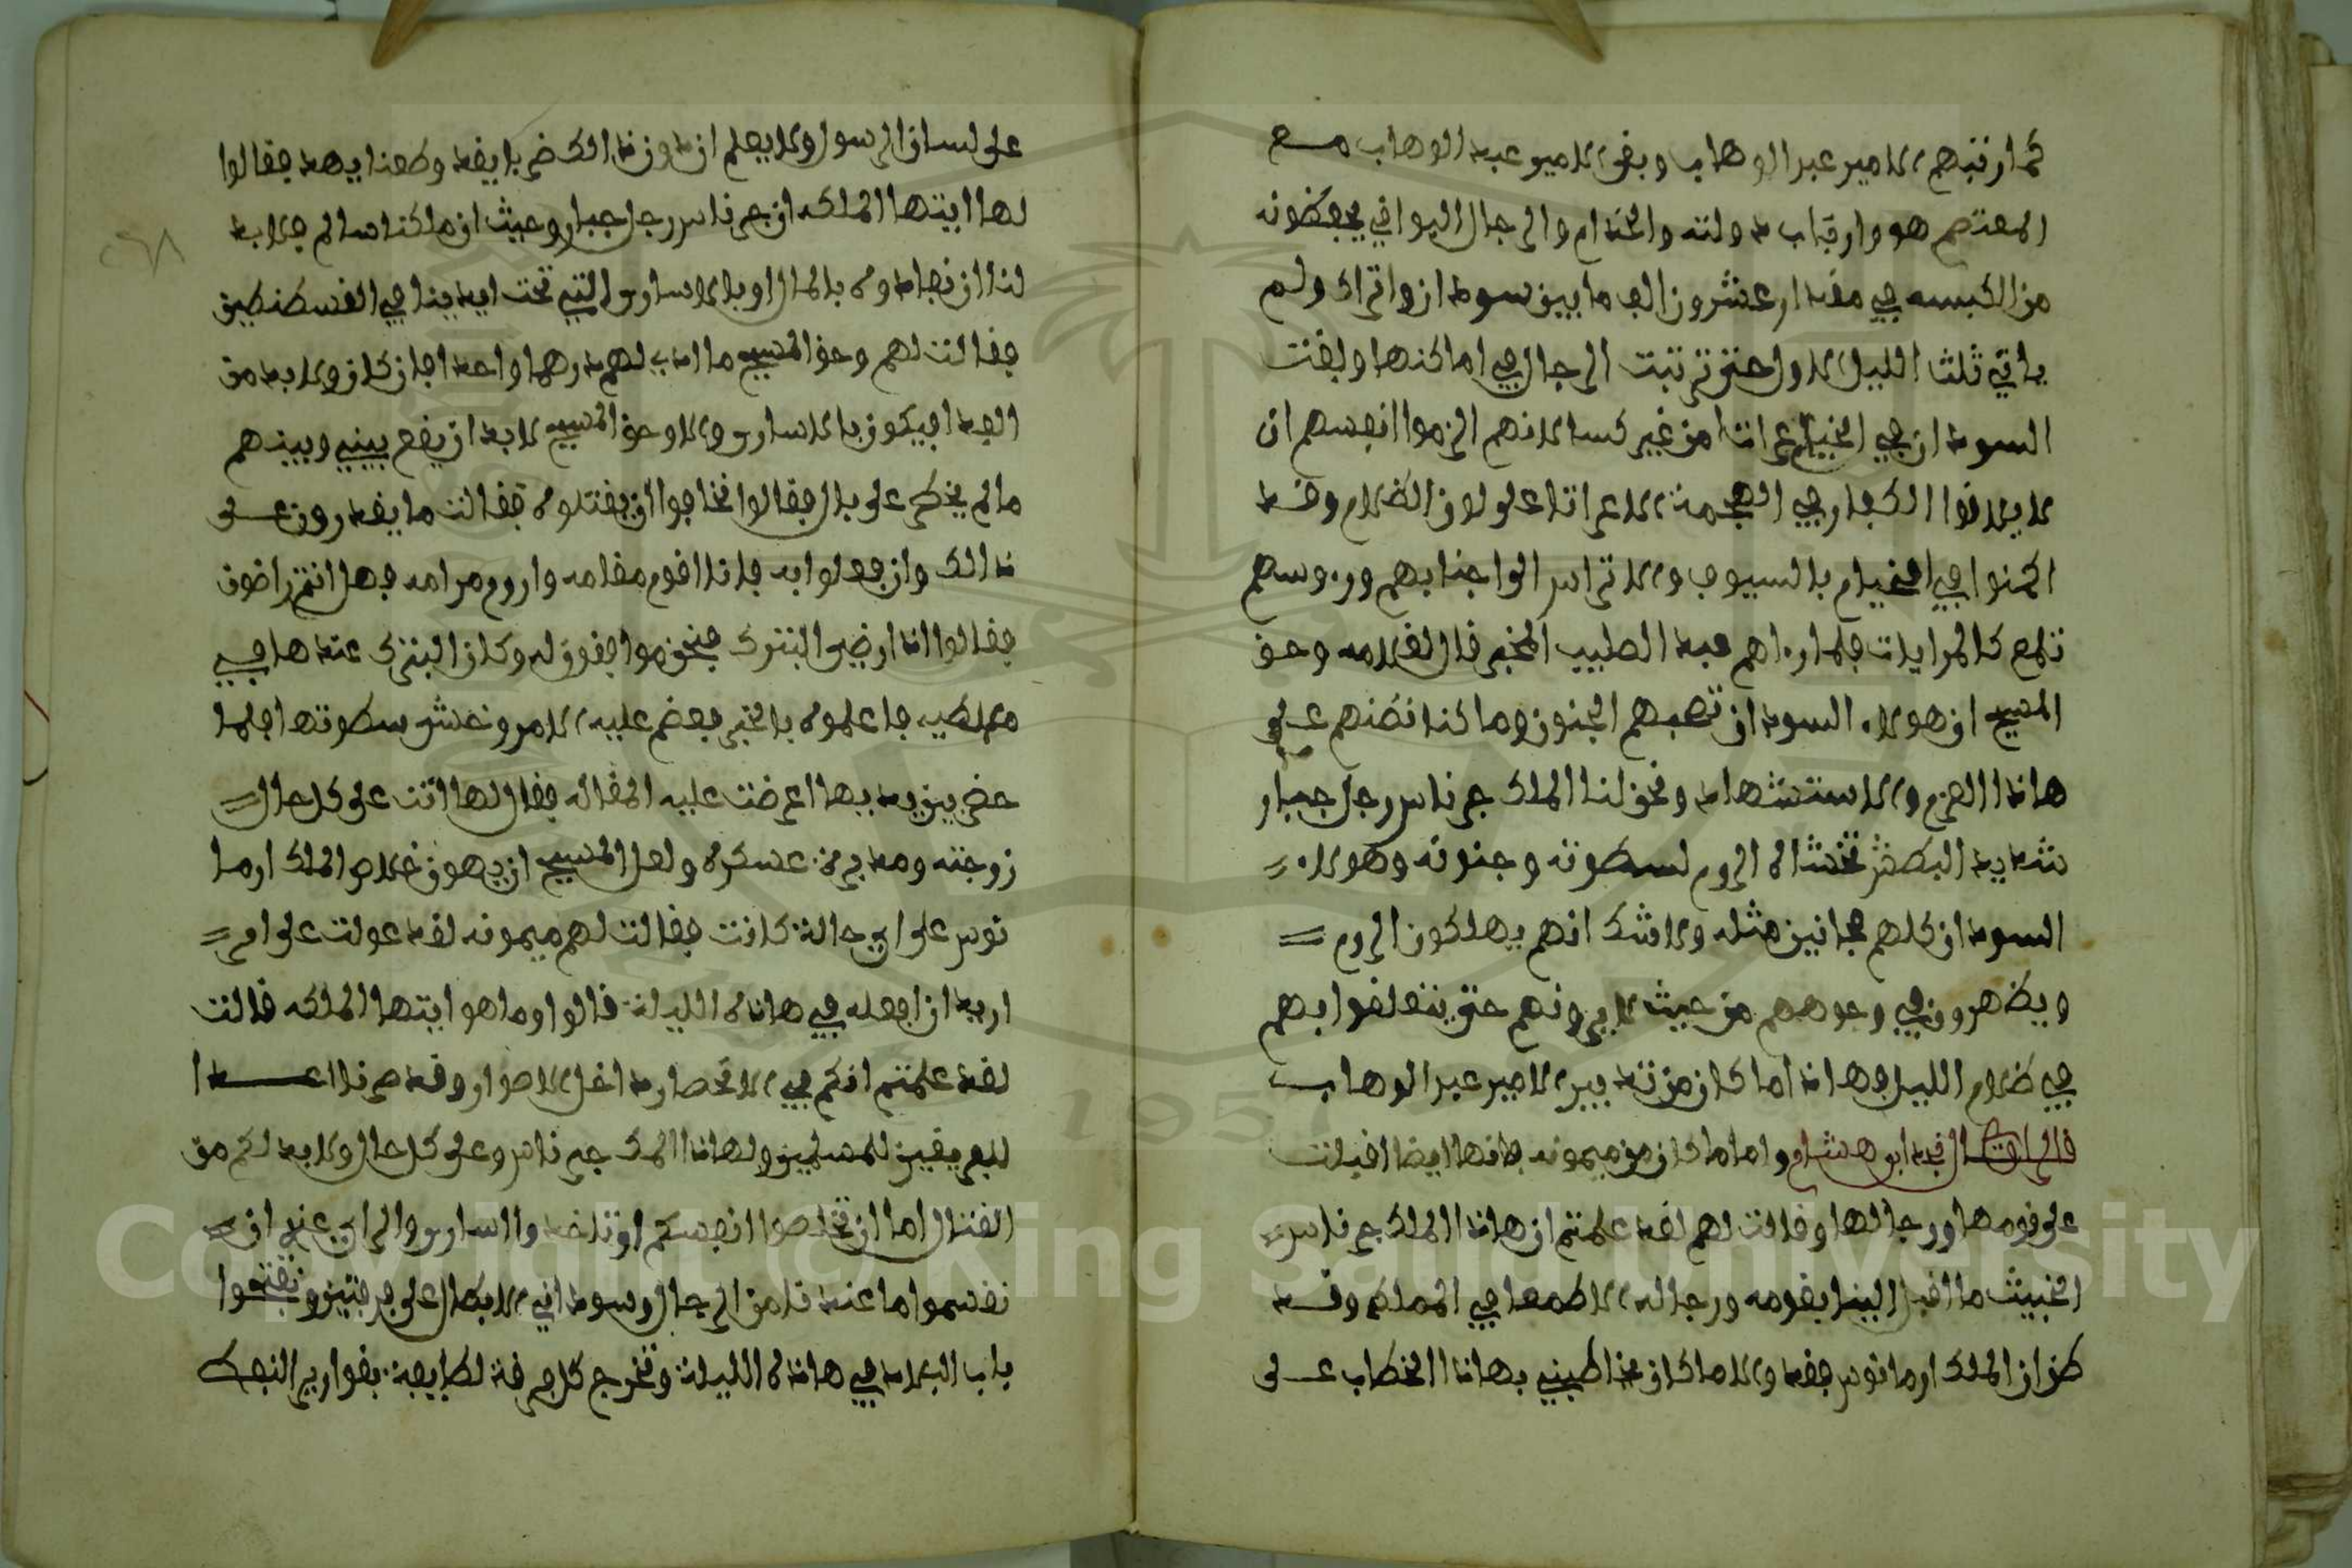 كما رتبهم الامير عبد الوهاب وبقى الامير عبد الوهاب مع
المعتصم هو وارقاب دولته والخدام والرجال البواقي يحفظونه
من الكبسه في مقدار عشرون الف ما بين سودان واتراك ولم
ياتي ثلث الليل الاول حتى ترتبت الرجال في اماكنها وبقت
السودان في الخيام عرانا من غير كسا لانهم الزموا انفسهم ان
لا يلاقوا الكفار في الهجمة الا عرانا على لون الظلام وقد
اكمنوا في الخيام بالسيوف والاتراس الواجنابهم وروسهم
تلمع كالمرايات فلما راهم عبد الصليب المخبر قال لغلامه وحق
المسيح ان هولاء السودان تصبهم الجنون وما كنا نظنهم على
هاذا العزم والاستشهاد ونحن لنا الملك جرناس رجل جبار
شديد البطش تخشاه الروم لسطوته وجنونه وهولاء
السودان كلهم مجانين مثله ولا شك انهم يهلكون الروم
ويظهرون في وجوههم من حيث لا يرونهم حتى يتعلقوا بهم
في ظلام الليل وهاذا ما كان من تدبير الامير عبد الوهاب
قال الراوي نجد ابو هشام واما ما كان من ميمونه فانها ايضا اقبلت
على قومها ورجالها وقالت لهم لقد علمتم ان هاذا الملك جرناس
الخبيث ما اقبل الينا بقومه ورجاله الا طمعا في المملكه وقد
ظن ان الملك ارمانوس فقد والا ما كان يخاطبني بهاذا الخطاب على
على لسان الرسول ولا يعلم ان دون ذالك ضربا يقد وطعنا يهد فقالوا
لها ايتها الملكه ان جرناس رجل جبار وحيث ان ملكنا سالم فلا بد
لنا ان نفادوه بالمال او بالاسارى التي تحت ايدينا في القسطنطين
فقالت لهم وحق المسيح ما ادي لهم درهما واحدا فان كان ولا بد من
الفدا فيكون بالاسارى والا وحق المسيح لا بد ان يقع بيني وبينهم
ما لم يخطر على بال فقالوا نخافوا ان يقتلوه فقالت ما يقدرون على
ذالك وان فعلوا به فانا اقوم مقامه واروم مرامه فهل انتم راضون
فقالوا اذا رضي البترك فنحن موافقون له وكان البترك عندها في
ملطيه فاعلموه بالخبر فعضم عليه الامر وخشى سطوتها فلما
حضر بين يديها اعرضت عليه المقاله فقال لها انت على كل حال
زوجته ومدبره عسكره ولعل المسيح ان يهون خلاص الملك ارما
نوس على اي حالة كانت فقالت لهم ميمونه لقد عولت على امر
اريد ان افعله في هاذه الليلة قالوا وما هو ايتها الملكه قالت
لقد علمتم انكم في الانحصار داخل الاصوار وقد صرنا اعدا
للفريقين للمسلمين ولهاذا الملك جرناس وعلى كل حال ولا بد لكم من
القتال اما ان تخلصوا انفسكم او تاخذوا السارى والراي عندي ان
نقسموا ما عندنا من الرجال وسوداني الابطال على فرقتين ونفتحوا
باب البلاد في هاذه الليلة وتخرج كل فرقة لطايفة بقوارير النفط
٢٦٨
Copyright © King Saud University
1957